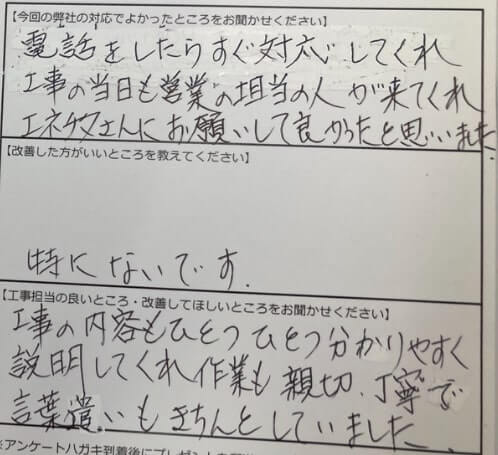 【今回の弊社の対応でよかったところをお聞かせください】
電話をしたらすぐ対応してくれ
工事の当日も営業の担当の人が来てくれ
エネタさんにお願いして良かったと思いました
【改善した方がいいところを教えてください】
特にないです.
【工事担当の良いところ・改善してほしいところをお聞かせください】
工事の内容もひとつひとつ分かりやすく
説明してくれ作業も親切、丁寧で
言葉遣いもきちんとしていました
※アンケートハガキ到着後にプレゼント